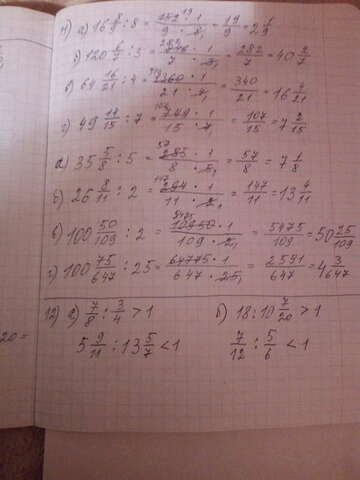 11) а) 16 8/9 : 8 = 152 · 1 / 9 · 8₁ = 19/9 = 2 1/9
б) 120 6/7 : 3 = 846 · 1 / 7 · 3₁ = 282/7 = 40 2/7
в) 64 16/21 : 4 = 1360 · 1 / 21 · 4₁ = 340/21 = 16 4/21
г) 49 14/15 : 7 = 749 · 1 / 15 · 7₁ = 107/15 = 7 2/15
а) 35 5/8 : 5 = 285 · 1 / 8 · 5₁ = 57/8 = 7 1/8
б) 26 8/11 : 2 = 294 · 1 / 11 · 2₁ = 147/11 = 13 4/11
в) 100 50/109 : 2 = 10950 · 1 / 109 · 2₁ = 5475/109 = 50 25/109
г) 100 75/647 : 25 = 64775 · 1 / 647 · 25₁ = 2591/647 = 4 3/647
12) а) 7/8 : 3/4 > 1 б) 18 : 10 7/20 > 1
5 9/11 : 13 5/7 < 1 7/12 : 5/6 < 1
20 =